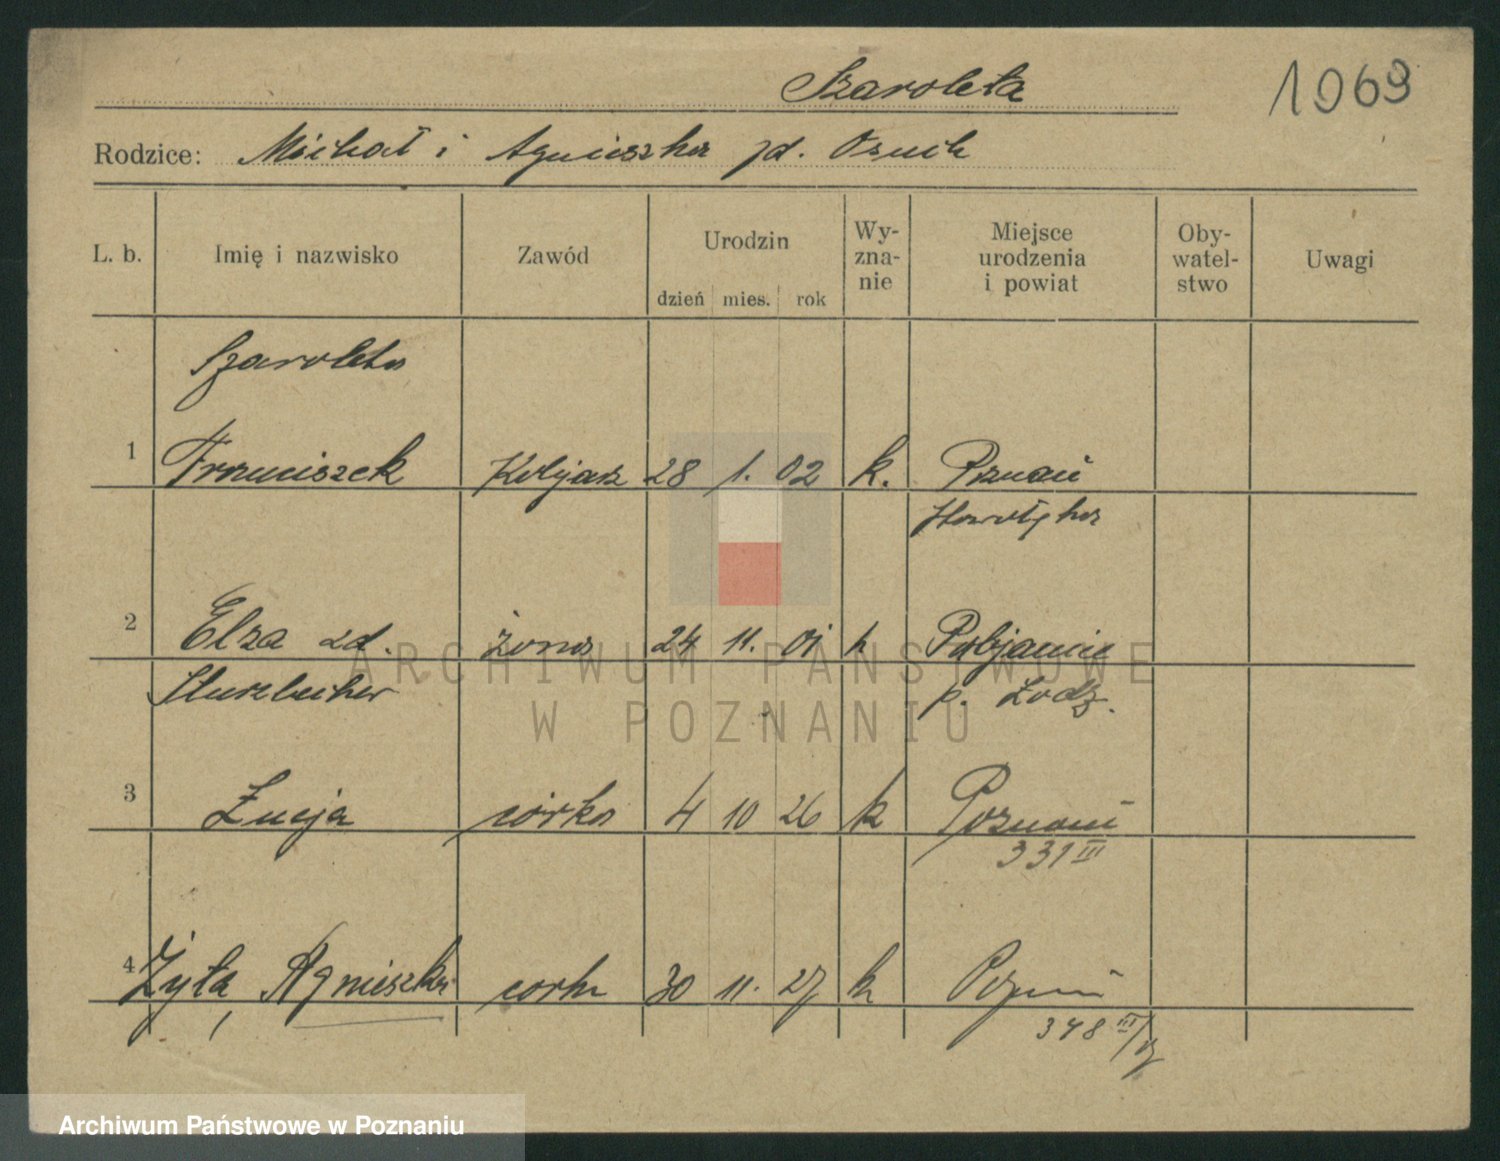 Szaroleta 1069
Rodzice: Michał i Agnieszka zd. Osuch
L. b. Imię i nazwisko Zawód Urodzin dzień mies. rok Wy-zna-nie Miejsce urodzenia i powiat Oby-watel-stwo Uwagi
Szaroleta
1 Franciszek 28 1. 02 k. Poznań
2 Elza zd. żona 24 11. 01 k Pabjanice
p. Łodz.
3 Łucja córka 4 10 26 k Poznań
331 III
4 Zyta, Agnieszka córka 30 11. 27 k Poznań
348 III
ARCHIWUM PAŃSTWOWE
W POZNANIU
Archiwum Państwowe w Poznaniu